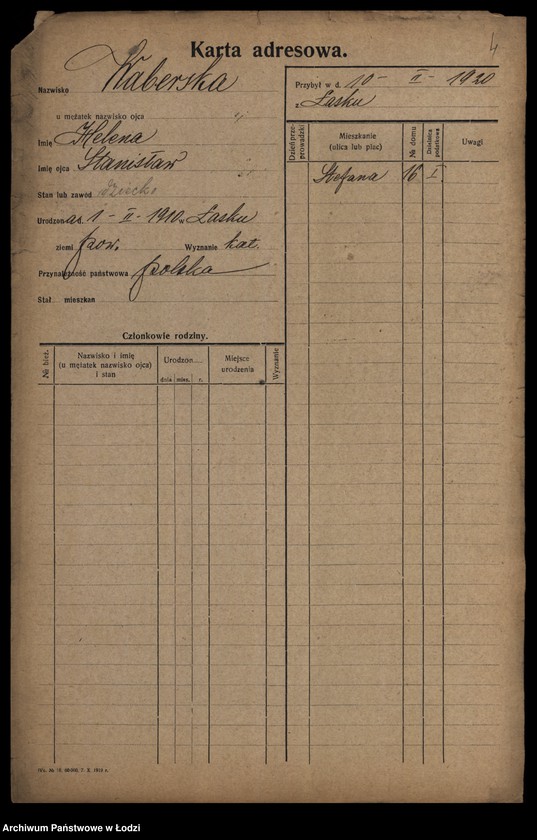 4
Karta adresowa.
Nazwisko Waberska
u mężatek nazwisko ojca "
Imię Helena
Imię ojca Stanisław
Stan lub zawód dziecko
Urodzona d. 1-II-1910 w Łasku
ziemi pow. Wyznanie kat.
Przynależność państwowa polska
Stał. mieszkan
Przybył w d. 10-II-1920
z Łasku
Dzień przeprowadzki
Mieszkanie
(ulica lub plac)
№ domu
Dzielnica podatkowa
Uwagi
Stefana 16 I
Członkowie rodziny.
№ bież.
Nazwisko i imię
(u mężatek nazwisko ojca)
i stan
Urodzon
dnia mies. r.
Miejsce
urodzenia
Wyznanie
Archiwum Państwowe w Łodzi